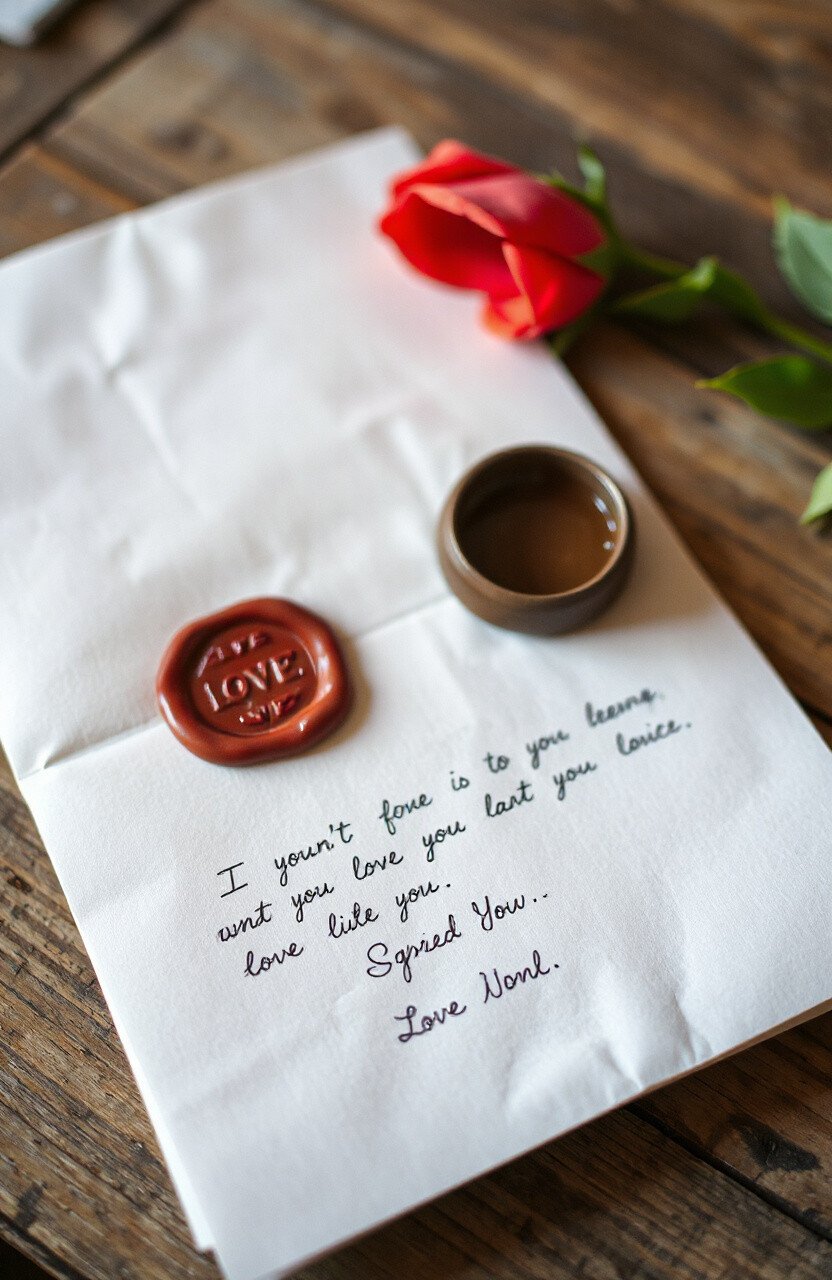 LOVE
I youn't fove is to you leeung,
wnt you love you lant you lovice.
love liite you.
Sgpried You..
Love Nonl.